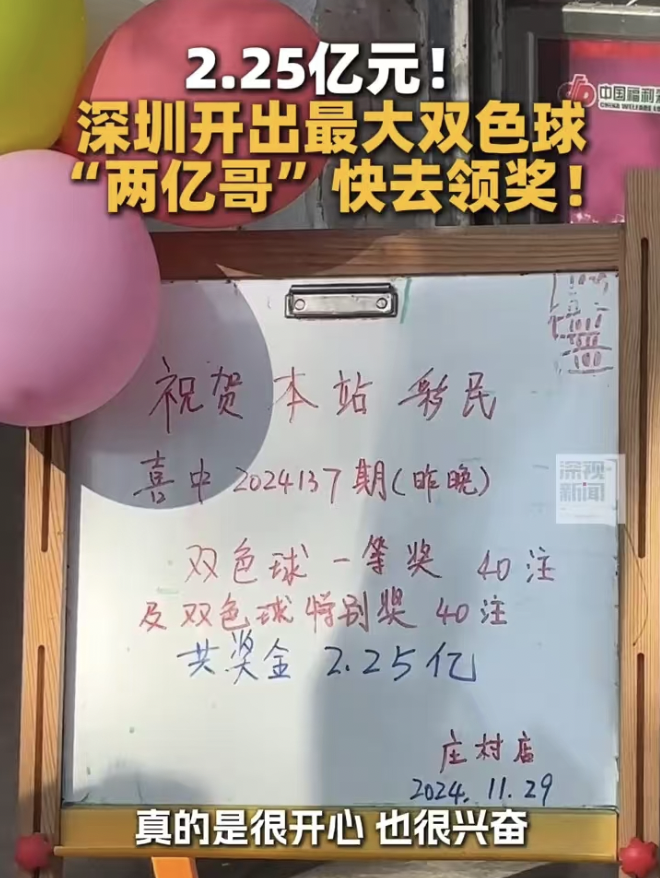 2.25亿元！
深圳开出最大双色球
“两亿哥”快去领奖！
中国福利
CHINA WELFARE
祝贺本站彩民
喜中2024137期(昨晚)
深视
新闻
双色球一等奖 40注
及双色球特别奖 40注
共奖金 2.25亿
庄村店
2024.11.29
真的是很开心 也很兴奋